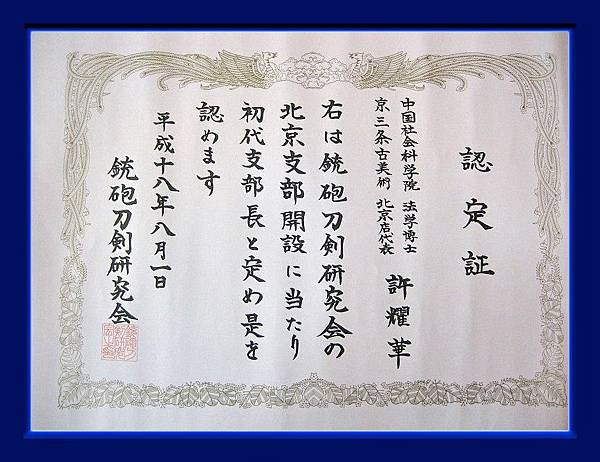 認定証
中国社会科学院 法学博士
京三条古美術 北京店代表
許耀華
右は銃砲刀剣研究会の
北京支部開設に当たり
初代支部長と定め是を
認めます
平成十八年八月一日
銃砲刀剣研究会